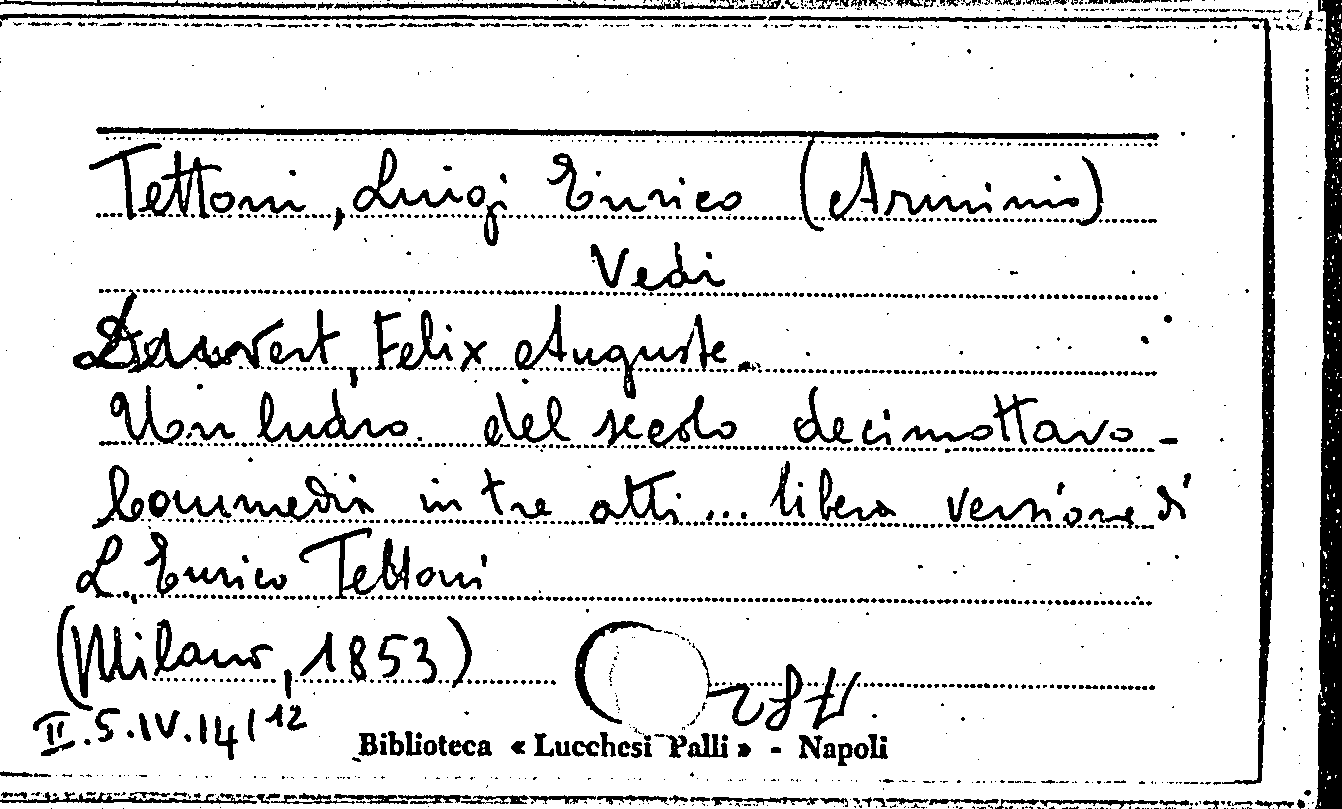 Tettoni, Luigi Enrico (Arminio)
Vedi
Duvert, Felix Auguste.
Un ludro del secolo decimottavo-
Commedia in tre atti... libera versione di
L. Enrico Tettoni
(Milano, 1853)
II.5.IV.14/12
Biblioteca « Lucchesi Palli » - Napoli